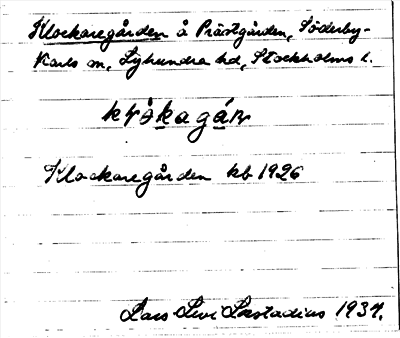 Klockaregården å Prästgården, Söderby-
Karls sn, Lyhundra hd, Stockholms l.
Klockaregården kb 1926
Lars Levi Læstadius 1937.